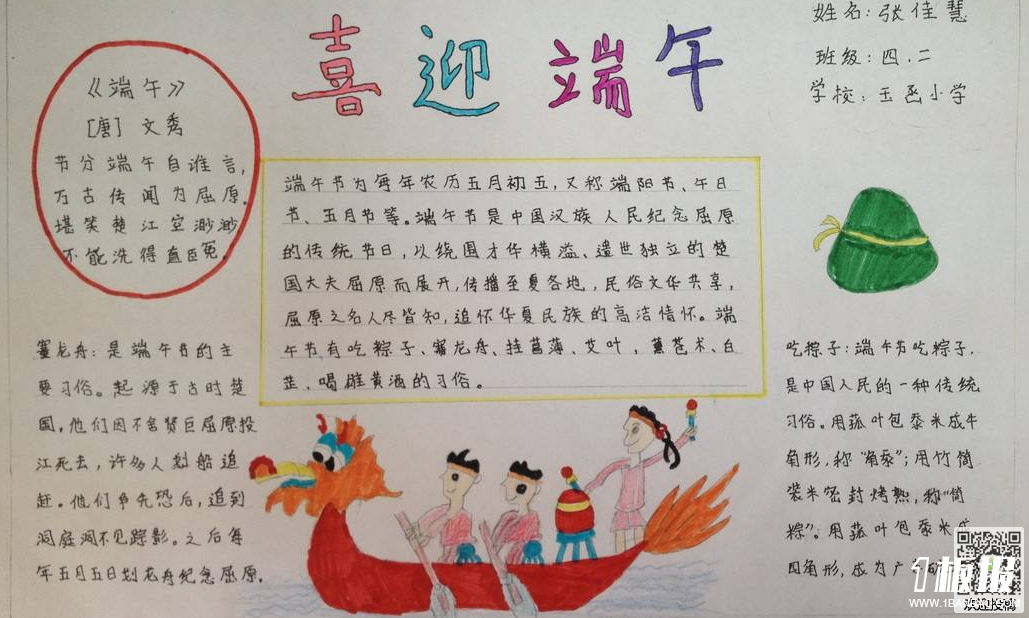 喜迎端午
姓名：张佳慧
班级：四.二
学校：玉丞小学
《端午》
[唐] 文秀
节分端午自谁言，
万古传闻为屈原。
堪笑楚江空渺渺
不能洗得直臣冤。
端午节为每年农历五月初五，又称端阳节、午日
节、五月节等。端午节是中国汉族人民纪念屈原
的传统节日，以绕围才华横溢、遗世独立的楚
国大夫屈原而展开，传播至夏各地，民俗文华共享，
屈原之名人尽皆知，追怀华夏民族的高洁情怀。端
午节有吃粽子、赛龙舟、挂菖蒲、艾叶，薰苍术、白
芷、喝雄黄酒的习俗。
赛龙舟：是端午节的主
要习俗。起源于古时楚
国，他们因不舍贤臣屈原投
江死去，许多人划船追
赶。他们争先恐后，追到
洞庭洞不见踪影。之后每
年五月五日划龙舟纪念屈原。
吃粽子：端午节吃粽子，
是中国人民的一种传统
习俗。用菰叶包黍米成牛
角形，称“角黍”；用竹筒
装米密封烤熟，称“筒
粽”。用菰叶包黍米成
四角形，成为广
1板报
WWW.1BAN
欢迎投稿